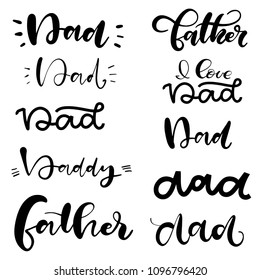 Dad
Dad
Dad
Daddy
father
father
I love
Dad
Dad
dad
dad
shutterstock.com · 1096796420